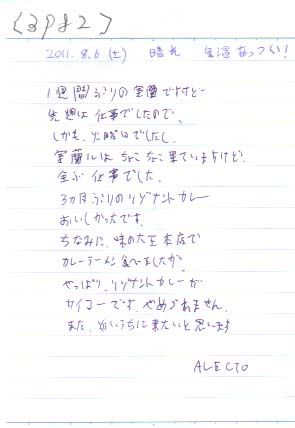 〈3P82〉
2011.8.6(土) 晴れ 気温 あっつい!
1週間ぶりの室蘭ですけど
先週は仕事でしたので、
しかも、火曜日でしたし、
室蘭にはちょこちょこ来ていますけど、
全部仕事でした。
3ヵ月ぶりのリゾナントカレー
おいしかったです。
ちなみに、味の大王本店で
カレーラーメン食べましたが、
やっぱり、リゾナントカレーが
サイコーです。やめられません。
また、近いうちに来たいと思います
ALECTO